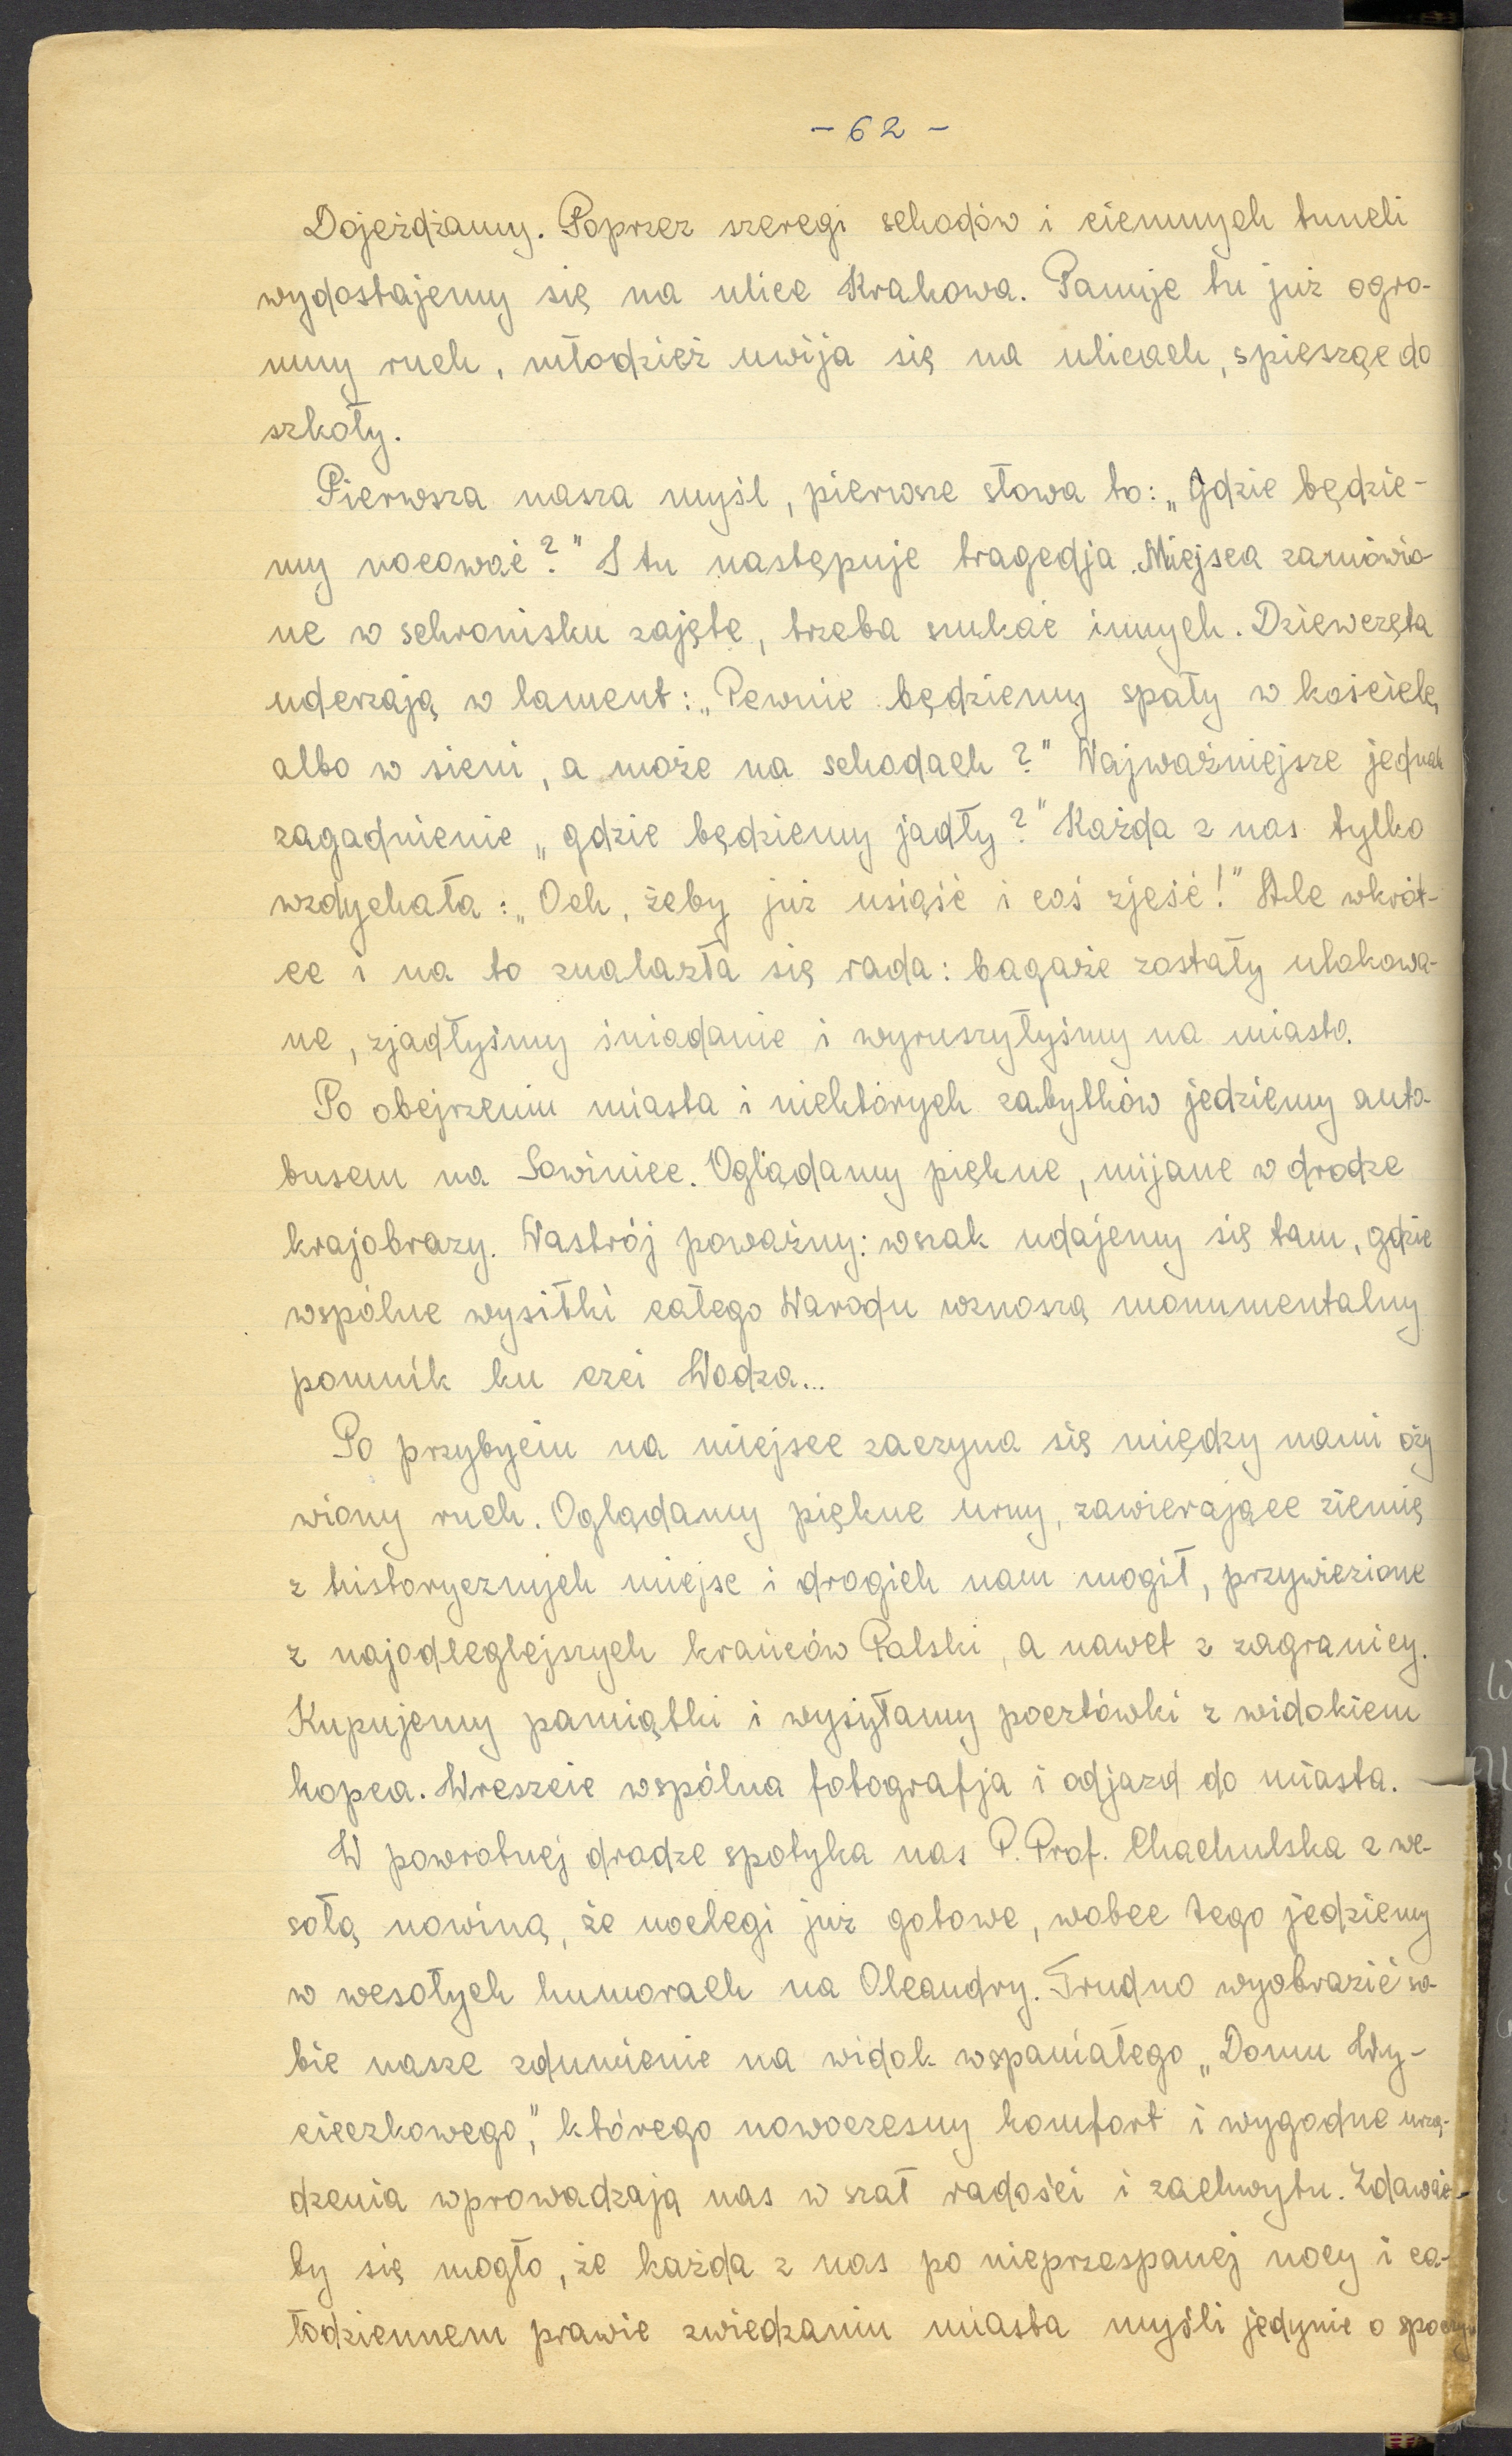 - 62 -
Dojeżdżamy. Poprzez szeregi schodów i ciemnych tuneli
wydostajemy się na ulice Krakowa. Panuje tu już ogro-
mny ruch, młodzież uwija się na ulicach, spiesząc do
szkoły.
Pierwsza nasza myśl, pierwsze słowa to: „Gdzie będzie-
my nocować?" I tu następuje tragedja. Miejsca zamówio-
ne w schronisku zajęte, trzeba szukać innych. Dziewczęta
uderzają w lament: „Pewnie będziemy spały w kościele,
albo w sieni, a może na schodach?" Najważniejsze jednak
zagadnienie „gdzie będziemy jadły?" Każda z nas tylko
wzdychała: „Och, żeby już usiąść i coś zjeść!" Ale wkrót-
ce i na to znalazła się rada: bagaże zostały ulokowa-
ne, zjadłyśmy śniadanie i wyruszyłyśmy na miasto.
Po obejrzeniu miasta i niektórych zabytków jedziemy auto-
busem na Sowiniec. Oglądamy piękne, mijane w drodze
krajobrazy. Nastrój poważny: wszak udajemy się tam, gdzie
wspólne wysiłki całego Narodu wznoszą monumentalny
pomnik ku czci Wodza...
Po przybyciu na miejsce zaczyna się między nami oży
wiony ruch. Oglądamy piękne urny, zawierające ziemię
z historycznych miejsc i drogich nam mogił, przywiezione
z najodleglejszych krańców Polski, a nawet z zagranicy.
Kupujemy pamiątki i wysyłamy pocztówki z widokiem
kopca. Wreszcie wspólna fotografja i odjazd do miasta.
W powrotnej drodze spotyka nas P. Prof. Chachulska z we-
sołą nowiną, że noclegi już gotowe, wobec tego jedziemy
w wesołych humorach na Oleandry. Trudno wyobrazić so-
bie nasze zdumienie na widok wspaniałego „Domu Wy-
cieczkowego", którego nowoczesny komfort i wygodne urzą-
dzenia wprowadzają nas w szał radości i zachwytu. Zdawać-
by się mogło, że każda z nas po nieprzespanej nocy i ca-
łodziennem prawie zwiedzaniu miasta myśli jedynie o spoczy